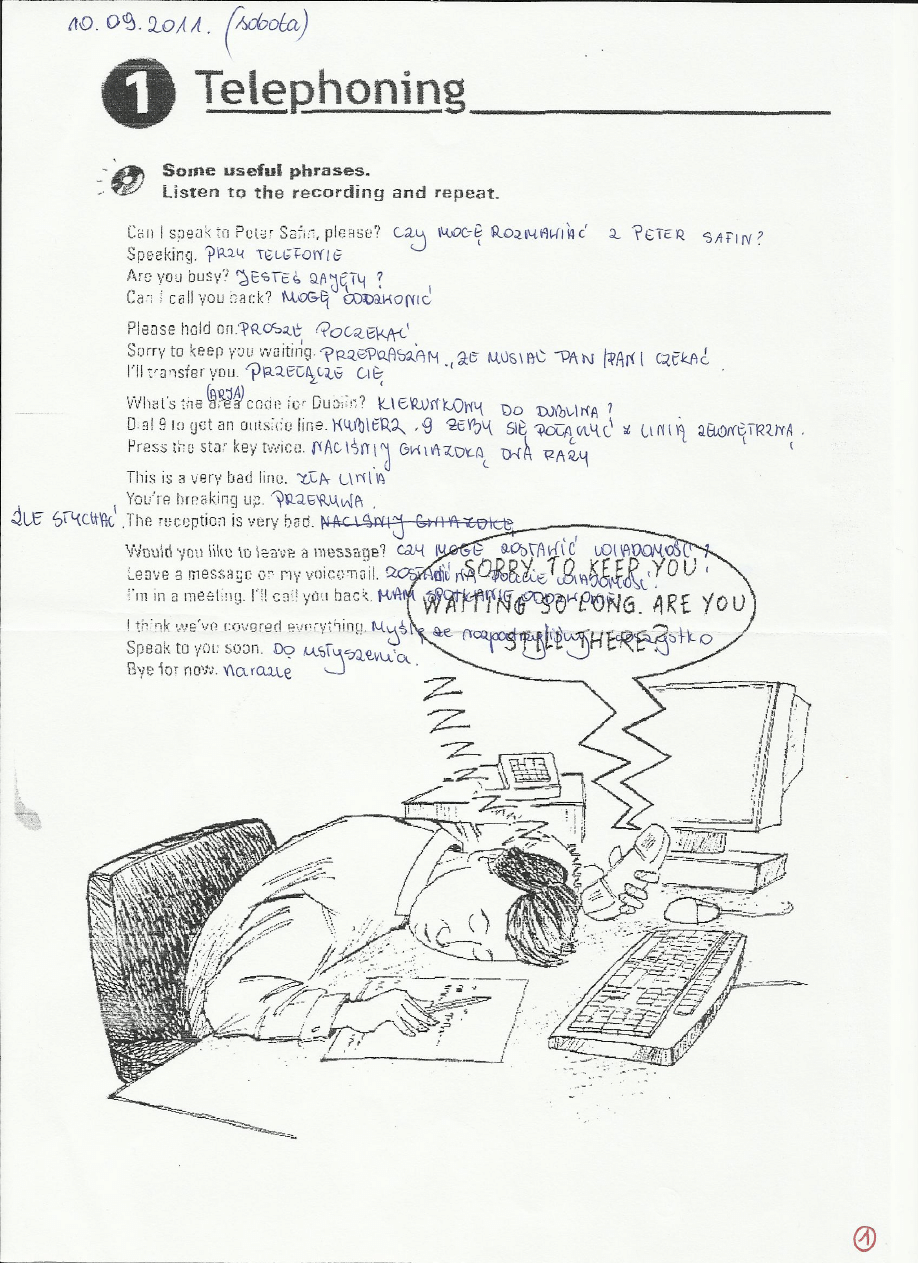 10.09.2011. (sobota)
1 Telephoning
Some useful phrases.
Listen to the recording and repeat.
Can I speak to Peter Safin, please? CZY MOGĘ ROZMAWIAĆ Z PETER SAFIN?
Speaking. PRZY TELEFONIE
Are you busy? JESTEŚ ZAJĘTY?
Can I call you back? MOGĘ ODDZWONIĆ
Please hold on. PROSZĘ POCZEKAĆ
Sorry to keep you waiting. PRZEPRASZAM, ŻE MUSIAŁ PAN/PANI CZEKAĆ
I'll transfer you. PRZEŁĄCZĘ CIĘ
(ARJA)
What's the area code for Dublin? KIERUNKOWY DO DUBLINA?
Dial 9 to get an outside line. WYBIERZ 9 ŻEBY SIĘ POŁĄCZYĆ Z LINIĄ ZEWNĘTRZNĄ.
Press the star key twice. NACIŚNIJ GWIAZDKĄ DWA RAZY
This is a very bad line. ZŁA LINIA
You're breaking up. PRZERYWA.
ŹLE SŁYCHAĆ. The reception is very bad. NACIŚNIJ GWIAZDKĘ
Would you like to leave a message? CZY MOGĘ ZOSTAWIĆ WIADOMOŚĆ?
Leave a message on my voicemail. ZOSTAW NA POCZCIE WIADOMOŚĆ.
I'm in a meeting. I'll call you back. MAM SPOTKANIE ODDZWONIĘ
I think we've covered everything. Myślę że wszystko
Speak to you soon. Do usłyszenia.
Bye for now. Narazie
SORRY TO KEEP YOU
WAITING SO LONG. ARE YOU
STILL THERE?
1